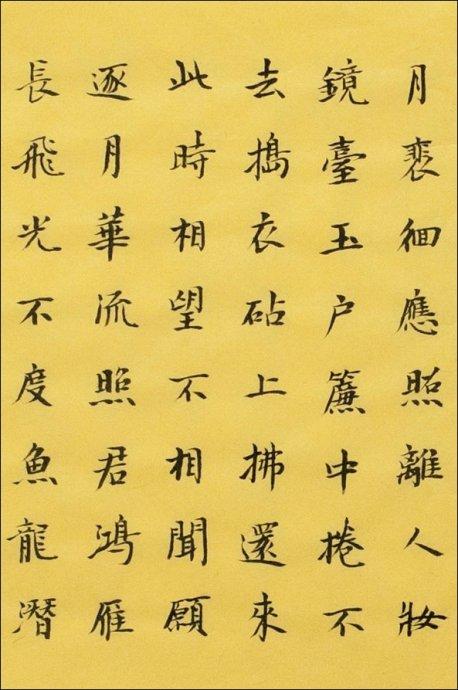 月裴徊應照離人妝
鏡臺玉户簾中捲不
去搗衣砧上拂還來
此時相望不相聞願
逐月華流照君鴻雁
長飛光不度魚龍潛